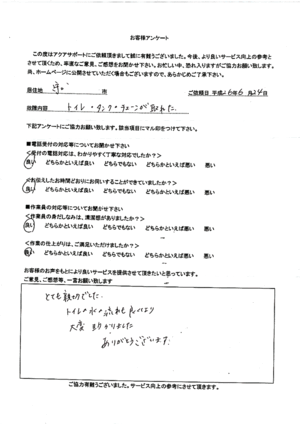 お客様アンケート
この度はアクアサポートにご依頼頂きまして誠に有難うございました。今後、より良いサービス向上の参考と
させて頂くため、率直なご意見、ご感想をお聞かせ下さい。お忙しい中、恐れ入りますがご協力お願い致します。
尚、ホームページに公開させていただく場合もございますので、あらかじめご了承下さい。
居住地 市 ご依頼日 平成26年6月24日
故障内容 トイレ・タンク・チェーンが取れた
下記アンケートにご協力お願い致します。該当項目にマル印をつけて下さい。
■電話受付の対応等についてお聞かせ下さい
<受付の電話対応は、わかりやすく丁寧な対応でしたか?>
良い どちらかといえば良い どちらでもない どちらかといえば悪い 悪い
<お伝えしたお時間どおりにお伺いすることができていましたか?>
良い どちらかといえば良い どちらでもない どちらかといえば悪い 悪い
■作業員の対応等についてお聞かせ下さい
<作業員の身だしなみは、清潔感がありましたか?>
良い どちらかといえば良い どちらでもない どちらかといえば悪い 悪い
<作業の仕上がりは、ご満足いただけましたか?>
良い どちらかといえば良い どちらでもない どちらかといえば悪い 悪い
お客様のお声をもとにより良いサービスを提供させて頂きたいと思っています。
ご意見、ご感想等、一言お願い致します
とても親切でした。
トイレの水の流れも良くなり
大変助かりました
ありがとうございます
ご協力有難うございました。サービス向上の参考にさせて頂きます。